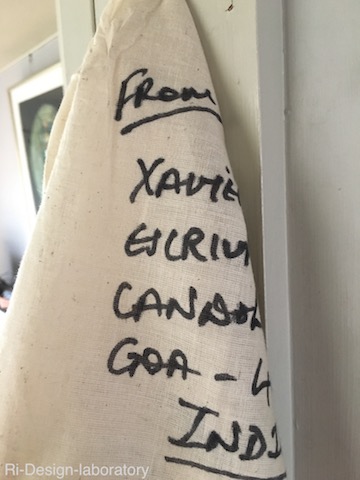 From
XAVIE
ESCRIV
CANDOL
GOA - 4
INDI
Ri-Design-laboratory